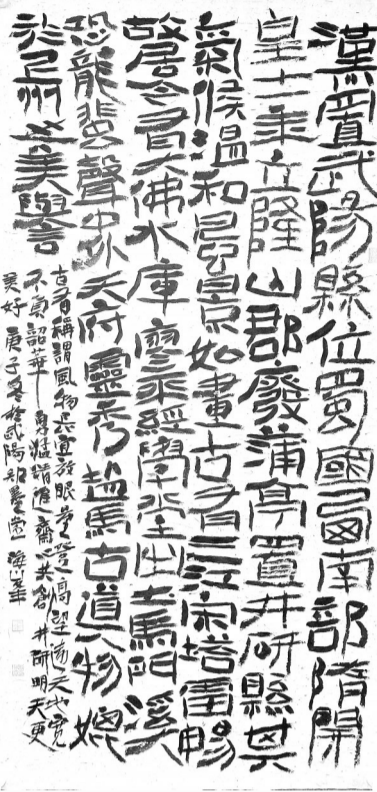 漢置武陽縣位蜀國西南部隋開
皇十一年立隆山郡廢蒲亭置井研縣其
氣候溫和風景如畫古有三江宋塔雷暢
故居今有大佛水庫廖平經學堂出土馬門溪
恐龍蜚聲中外天府靈秀趙馬古道人物媲
於州之美譽
古有稱謂風物長宜放眼量登高望天地寬
不負韶華勇猛精進齊心共創井研明天更
美好庚子冬於武陽